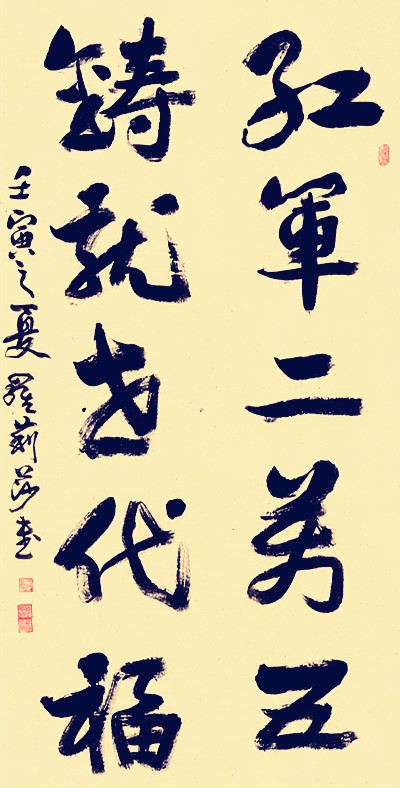 紅軍二萬五
鑄就世代福
壬寅之夏羅莉莎書